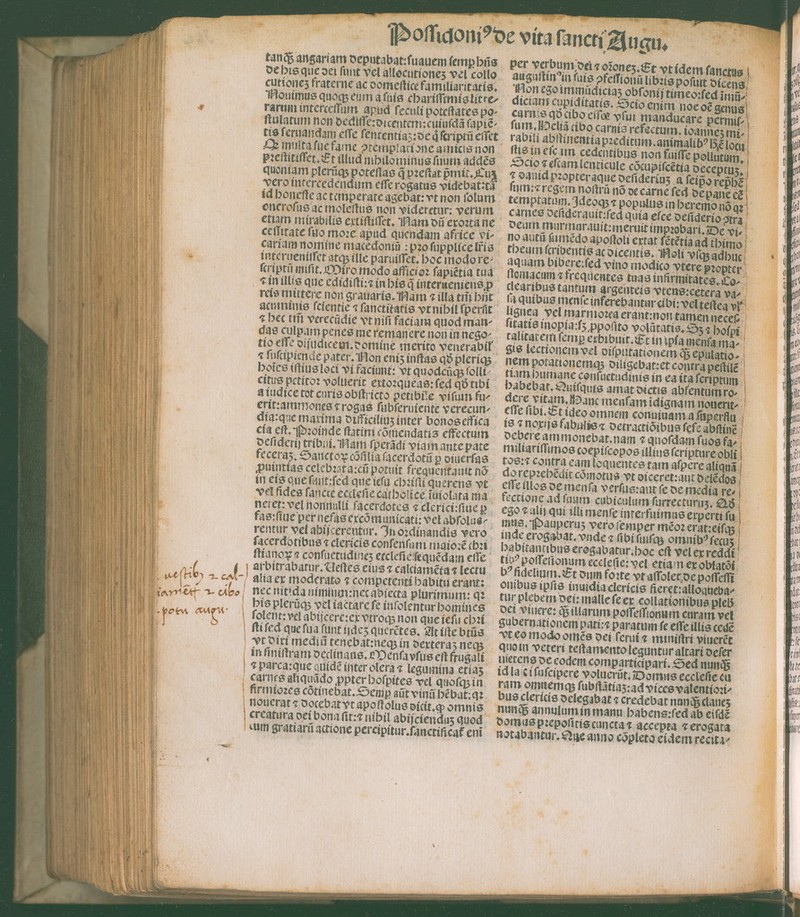 Possidoniꝰ de vita sancti Augu.
tanq̃ȝ angariam deputabat: suauem semp hñs
de his que dei sunt vel allocutioneȝ vel collo
cutioneȝ fraterne ac domestice familiaritatis.
Nouimus quoqȝ eum a suis charissimis litte⸗
rarum intercessum apud seculi potestates po⸗
stulatum non dedisse: dicentem: cuiusdã sapiẽ⸗
tis seruandam esse sententiaȝ: de q̃ scriptũ esset
multa sue fame
prestitisset. Et illud nihilominus suum addẽs
quoniam plerũqȝ potestas q̃ prestat p̃mit. Cuȝ
vero intercedendum esse rogatus videbat: tã
id honeste ac temperate agebat: vt non solum
onerosus ac molestus non videretur: verum
etiam mirabilis extitisset. Nam dũ exorta ne
cessitate suo more apud quendam africe vi⸗
carium nomine macedoniũ: pro supplice lr̃is
interuenisset atqȝ ille paruisset. hoc modo re⸗
scriptũ misit. Miro modo afficior sapiẽtia tua
⁊ in illis que edidisti: ⁊ in his q̃ interueniens ꝓ
reis mittere non grauaris. Nam ⁊ illa tm̃ hñt
acuminis scientie ⁊ sanctitatis vt nihil sperſit
⁊ hec tm̃ verecũdie vt nisi faciam quod man⸗
das culpam penes me remanere non in nego⸗
tio esse dijudicem. domine merito venerabil'
⁊ suscipiende pater. Non eniȝ instas qd̃ pleriqȝ
hoĩes istius loci vi faciunt: vt quodcũqȝ solli⸗
citus petitor voluerit extorqueas: sed qd̃ tibi
a iudice tot curis obstricto petibile visum fu⸗
erit: ammones ⁊ rogas subseruiente verecun⸗
dia: que maxima difficiliuȝ inter bonos effica
cia est. Proinde statim cõmendatis effectum
desiderij tribui. Nam sperãdi viam ante pate
feceraȝ. Sanctoꝝ cõsilia sacerdotũ ꝓ diuersas
ꝓuintias celebrata: cũ potuit frequentauit nõ
in eis que sunt: sed que iesu christi querens vt
vel fides sancte ecclesie catholice inuiolata ma
neret: vel nonnulli sacerdotes ⁊ clerici: siue ꝑ
fas: siue per nefas excõmunicati: vel absolue⸗
rentur vel abijcerentur. In ordinandis vero
sacerdotibus ⁊ clericis consensum maiorẽ chri
stianoꝝ ⁊ consuetudineȝ ecclesie sequẽdam esse
arbitrabatur. Uestes eius ⁊ calciamẽta ⁊ lectu
alia ex moderato ⁊ competenti habitu erant:
nec nitida nimium: nec abiecta plurimum: qꝛ
his plerũqȝ vel iactare se insolentur homines
solent: vel abijcere: ex vtroqȝ non que iesu chri
sti sed que sua sunt ijdeȝ querẽtes. At iste btũs
vt dixi mediũ tenebat: neqȝ in dexteraȝ neqȝ
in sinistram declinans. Mensa vsus est frugali
⁊ parca: que quidẽ inter olera ⁊ legumina etiaȝ
carnes aliquãdo ꝓpter hospites vel quosqȝ in
firmiores cõtinebat. Semp aũt vinũ hẽbat: qꝛ
nouerat ⁊ docebat vt apostolus dicit. ꝙ omnis
creatura dei bona sit: ⁊ nihil abijciendũ quod
cum gratiarũ actione percipitur. sanctificat' eni
per verbum dei ⁊ orõneȝ. Et vt idem sanctus
augustinꝰ in suis ɔfessionũ libris posuit dicens
Non ego immũdiciaȝ obsonij timeo: sed imũ⸗
diciam cupiditatis. Scio enim noe oẽ genus
carnis qd̃ cibo esset vsui manducare permis⸗
sum. Heliã cibo carnis refectum. ioanneȝ mi⸗
rabili abstinentia preditum. animalibꝰ hoc est locu
stis in escam cedentibus non fuisse pollutum.
Scio ⁊ esau lenticule cõcupiscẽtia deceptuȝ.
⁊ dauid propter aque desideriuȝ a seipo reph̃ẽ
sum: ⁊ regem nostrũ nõ de carne sed de pane eẽ
temptatum. Ideoqȝ ⁊ populus in heremo nõ qꝛ
carnes desiderauit: sed quia esce desiderio ɔtra
deum murmurauit: meruit improbari. De vi⸗
no autũ sumẽdo apostoli extat sẽtẽtia ad thimo
theum scribentis ac dicentis. Noli vsqȝ adhuc
aquam bibere: sed vino modico vtere propter
stomacum ⁊ frequentes tuas infirmitates. Co⸗
clearibus tantum argenteis vtens: cetera va⸗
sa quibus mense inferebantur cibi: vel testea vl'
lignea vel marmorea erant: non tamen necef⸗
sitatis inopia: sȝ ꝓposito volũtatis. Sȝ ⁊ hospi
talitatem semp exhibuit. Et in ipsa mensa ma⸗
gis lectionem vel disputationem q̃ȝ epulatio⸗
nem potationemqȝ diligebat: et contra pestilẽ
tiam humane consuetudinis in ea ita scriptum
habebat. Quisquis amat dictis absentum ro⸗
dere vitam. Hanc mensam indignam nouerit⸗
esse sibi. Et ideo omnem conuiuam a superflu
is ⁊ noxijs fabulis ⁊ detractiõibus sese abstinẽ
debere ammonebat. nam ⁊ quosdam suos fa⸗
miliarissimos coepiscopos illius scripture obli
tos: ⁊ contra eam loquentes tam aspere aliquã
do reprehẽdit cõmotus vt diceret: aut delẽdos
esse illos de mensa versus: aut se de media re⸗
fectione ad suum cubiculum surrecturuȝ. Qd̃
ego ⁊ alij qui illi mense interfuimus experti su
mus. Pauperuȝ vero semper memor erat: eisqȝ
inde erogabat. vnde ⁊ sibi suisqȝ omnibꝰ secuȝ
habitantibus erogabatur. hoc est vel ex reddi⸗
tibꝰ possessionum ecclesie: vel etiam ex oblatõi
bꝰ fidelium. Et dum forte vt assolet de possessi
onibus ipsis inuidia clericis fieret: alloqueba⸗
tur plebem dei: malle se ex collationibus plebis
dei viuere: q̃ȝ illarum possessionum curam vel
gubernationem pati: ⁊ paratum se esse illis cedẽ
vt eo modo omẽs dei serui ⁊ ministri viuerẽt
quo in veteri testamento leguntur altari deser
uietens de eodem comparticipari. Sed nunqȝ
id laici suscipere voluerũt. Domus ecclesie cu
ram omnemqȝ substãtiaȝ: ad vices valentiori⸗
bus clericis delegabat ⁊ credebat nunqȝ claueȝ
nunqȝ annulum in manu habens: sed ab eisdẽ
domus prepositis cuncta ⁊ accepta ⁊ erogata
notabantur. Que anno cõpleto eidem recita⸗
vestibȝ ⁊ cal⸗
iamẽt ⁊ cibo
potu augu